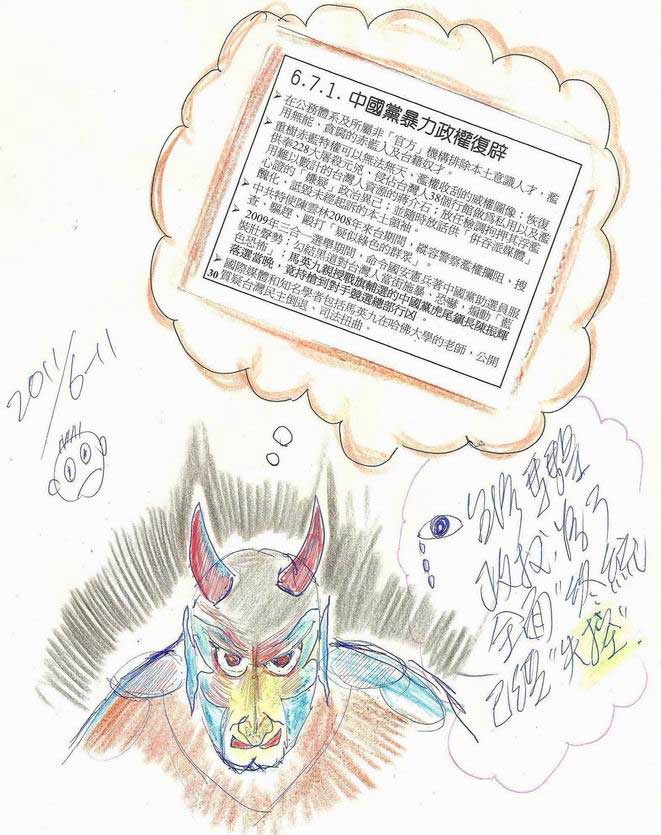 6.7.1. 中國黨暴力政權復辟
➢ 在公務體系及所屬非「官方」機構排除本土意識人才，濫
用無能、貪腐的赤藍人及台籍奴才。
➢ 重樹赤藍特權可以無法無天、濫權收刮的威權圖像；恢復
供奉228大屠殺元兇、侵佔台灣人38個行館做為私用以及濫
用難以數計的台灣人資源的蔣介石；放任檢調拘押其浮濫
心證的「嫌疑」政治異己；並隨時放話供「併吞派媒體」
醜化、詆毀未經起訴的本土領袖。
➢ 中共特使陳雲林2008年來台期間，縱容警察濫權攔阻、搜
查、驅趕、毆打「疑似綠色的群眾」。
➢ 2009年三合一選舉期間，命令國安憲兵著中國黨助選員服
裝壯聲勢；勾結黑道對台灣人當街施暴、恐嚇，煽動「藍
色恐怖」；馬英九親授戰旗輔選的中國黨虎尾鎮長陳振輝
落選當晚，竟持槍到對手競選總部行凶。
➢ 國際媒體和知名學者包括馬英九在哈佛大學的老師，公開
質疑台灣民主倒退、司法扭曲。
30
2011/6-11
政权,
全面"終統"
已經"失控".